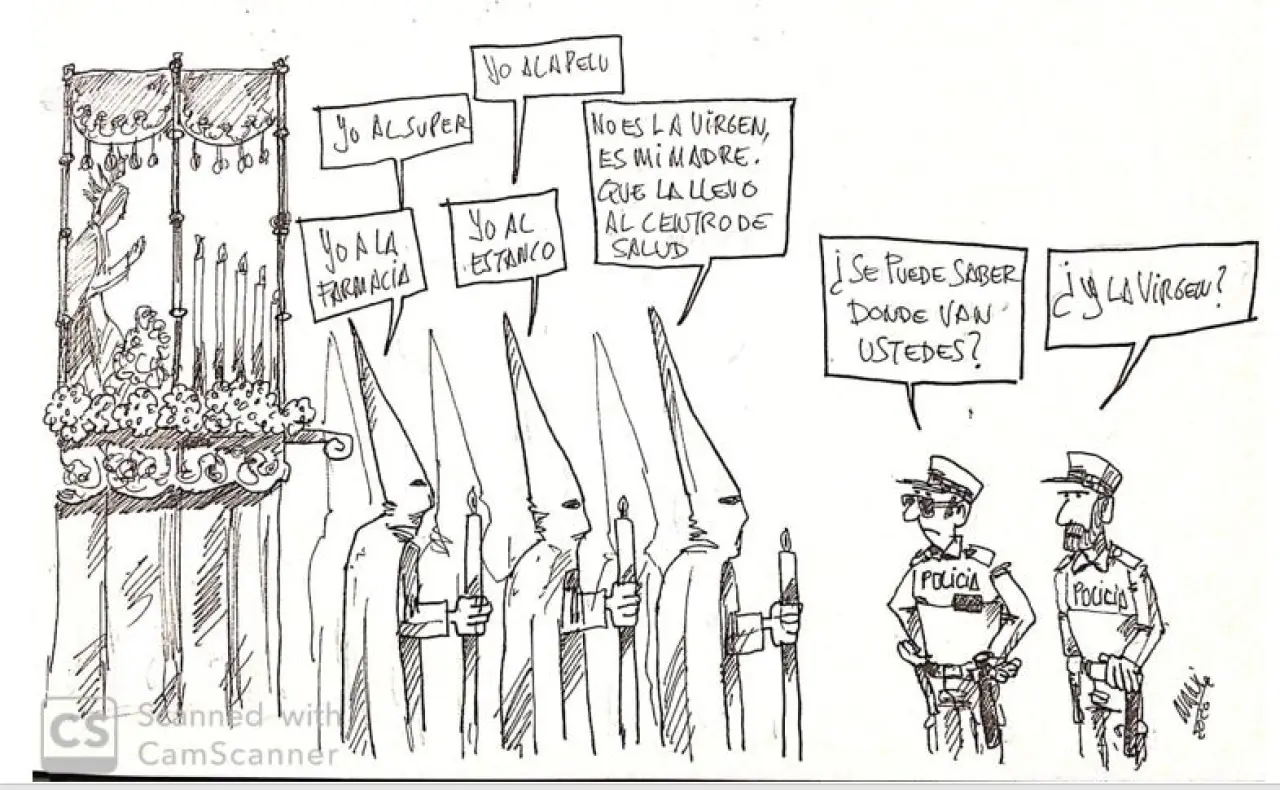 YO AL SUPER
YO A LA PELU
YO A LA
FARMACIA
YO AL
ESTANCO
NO ES LA VIRGEN,
ES MI MADRE.
QUE LA LLEVO
AL CENTRO DE
SALUD
¿SE PUEDE SABER
DONDE VAN
USTEDES?
¿Y LA VIRGEN?
POLICIA
POLICIA
CS
Scanned with
CamScanner